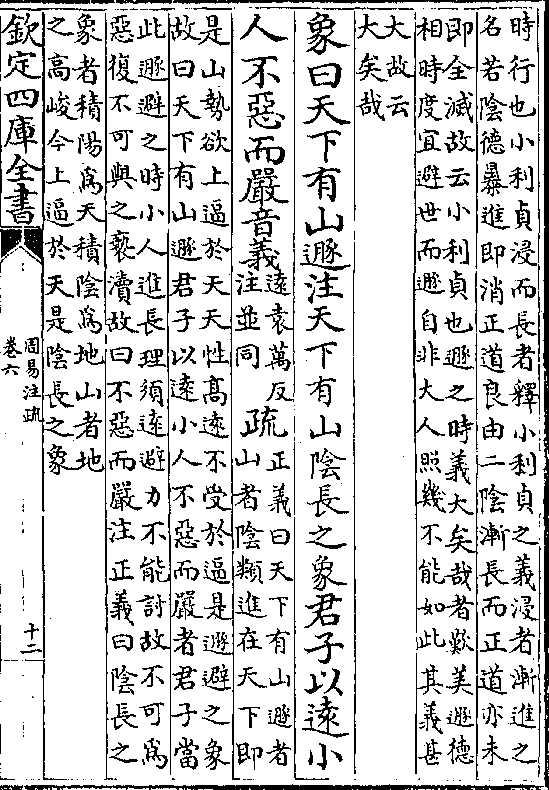 時行也小利貞浸而長者釋小利貞之義浸者漸進之
名若陰德暴進即消正道良由二陰漸長而正道亦未
即全滅故云小利貞也遯之時義大矣哉者歎美遯德
相時度宜避世而遯自非大人照幾不能如此其義甚
大故云
大矣哉
象曰天下有山遯注天下有山陰長之象君子以遠小
人不惡而嚴音義
遠袁萬反
注並同
疏
正義曰天下有山遯者
山者陰類進在天下即
是山勢欲上逼於天天性髙遠不受於逼是遯避之象
故曰天下有山遯君子以逺小人不惡而嚴者君子當
此遯避之時小人進長理須逺避力不能討故不可為
惡復不可與之褻瀆故曰不惡而嚴注正義曰陰長之
象者積陽為天積陰為地山者地
之高峻今上逼於天是陰長之象
欽定四庫全書
周易注疏
卷六
十二